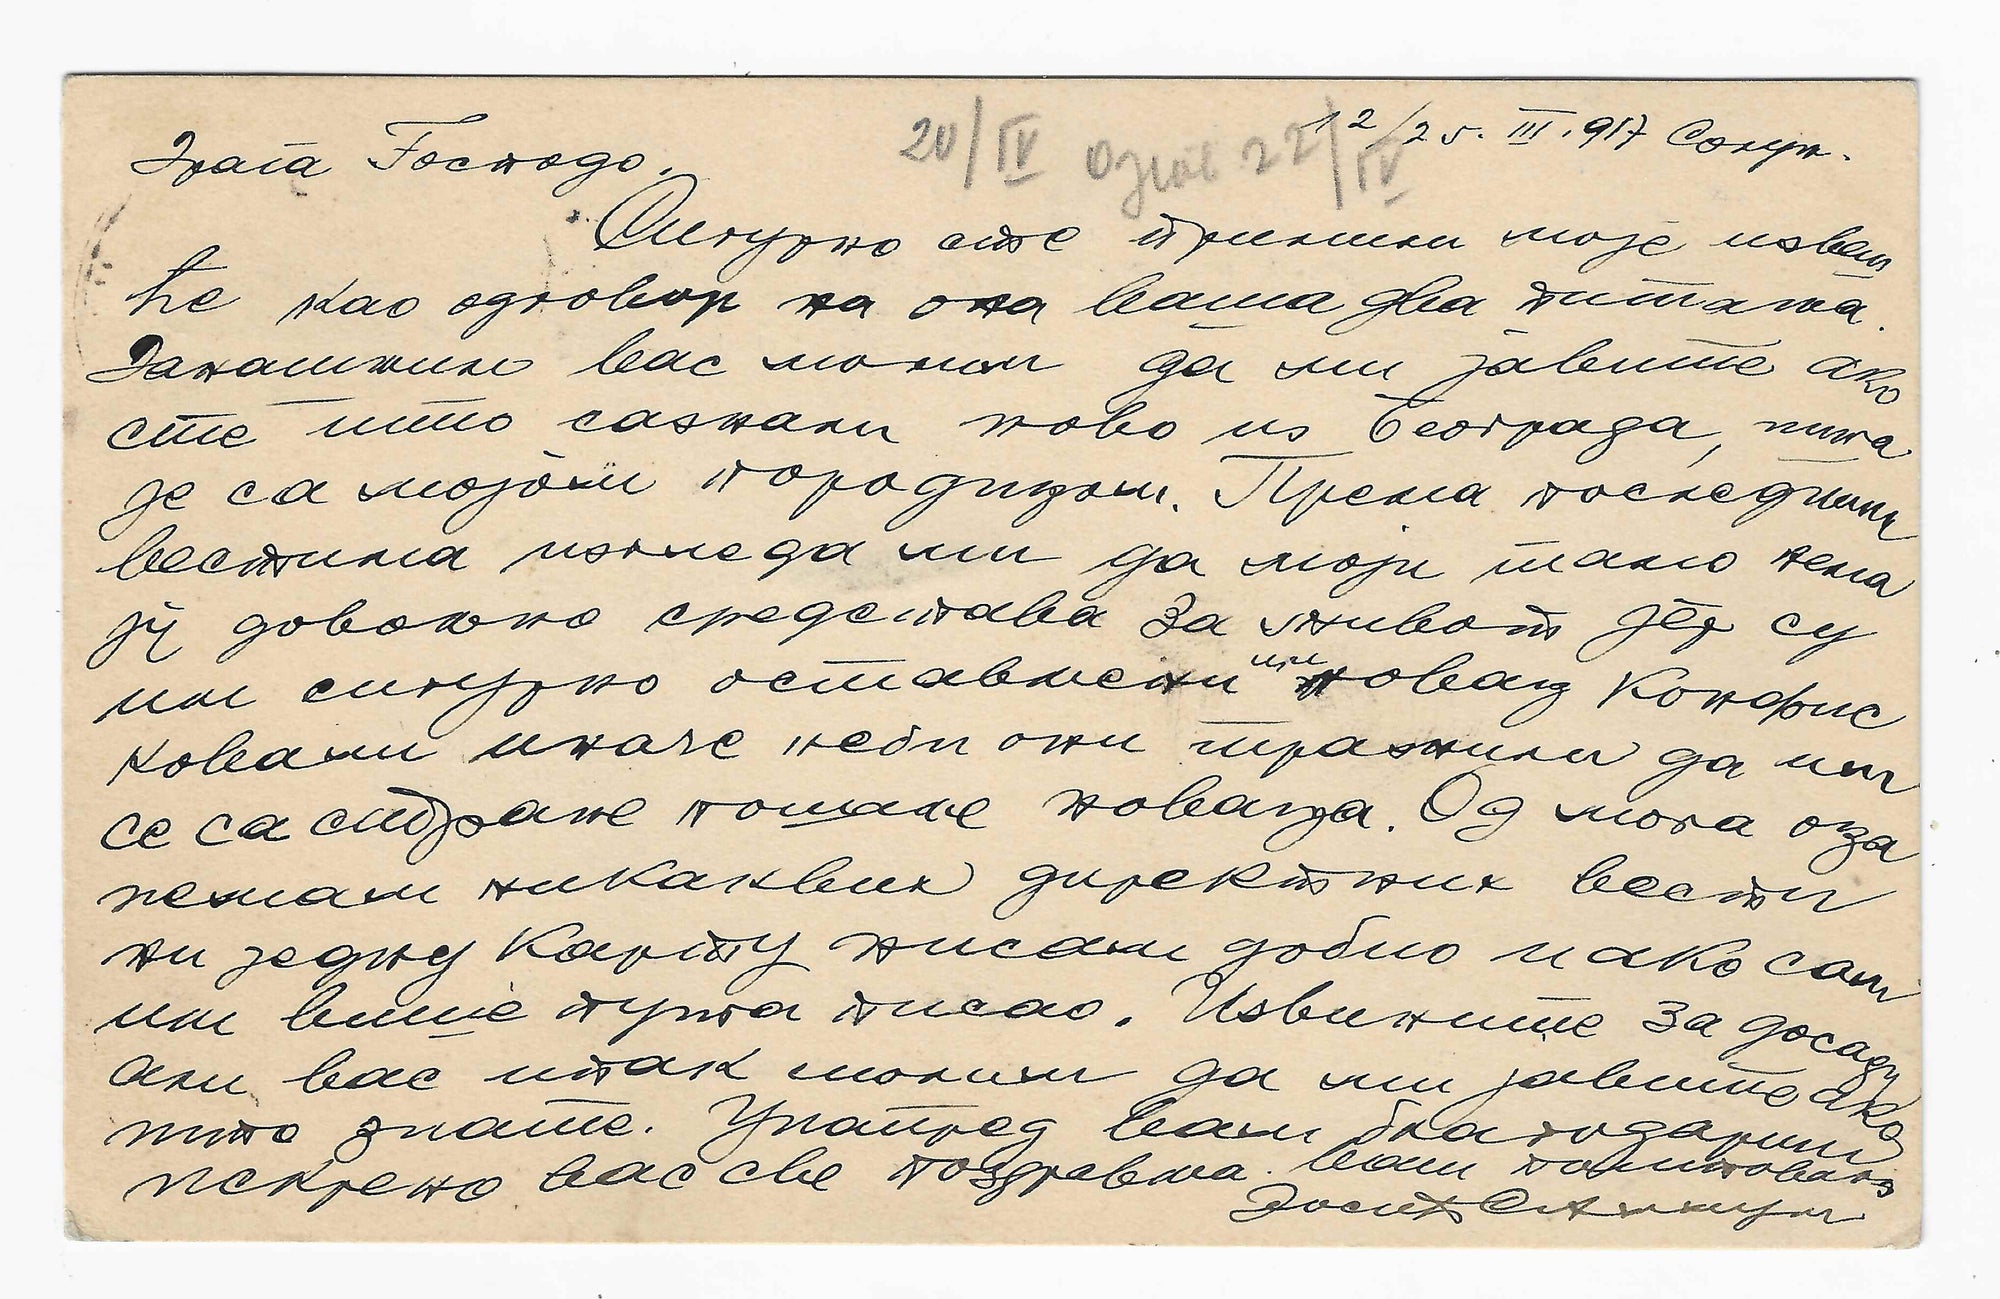 12/25. III. 917 Солун.
20/IV 22/IV
Драга Госпођо,
Сигурно сте примили моје извеш
ће као одговор на она ваша два питања.
Данашњим вас молим да ми јавите ако
сте што сазнали ново из Београда, шта
је са мојом породицом. Према последњим
вестима изгледа ми да моји тамо нема
ју довољно средстава за живот јер су
им сигурно остављени новац конфис
ковали иначе неби они тражили да им
се са стране пошаље новаца. Од мога оца
немам никаквих директних вести
ни једну карту нисам добио и ако сам
им више пута писао. Извините за досаду
али вас ипак молим да ми јавите ако
што знате. Унапред вам благодарим
искрено вас све поздравља ваш поштовалац